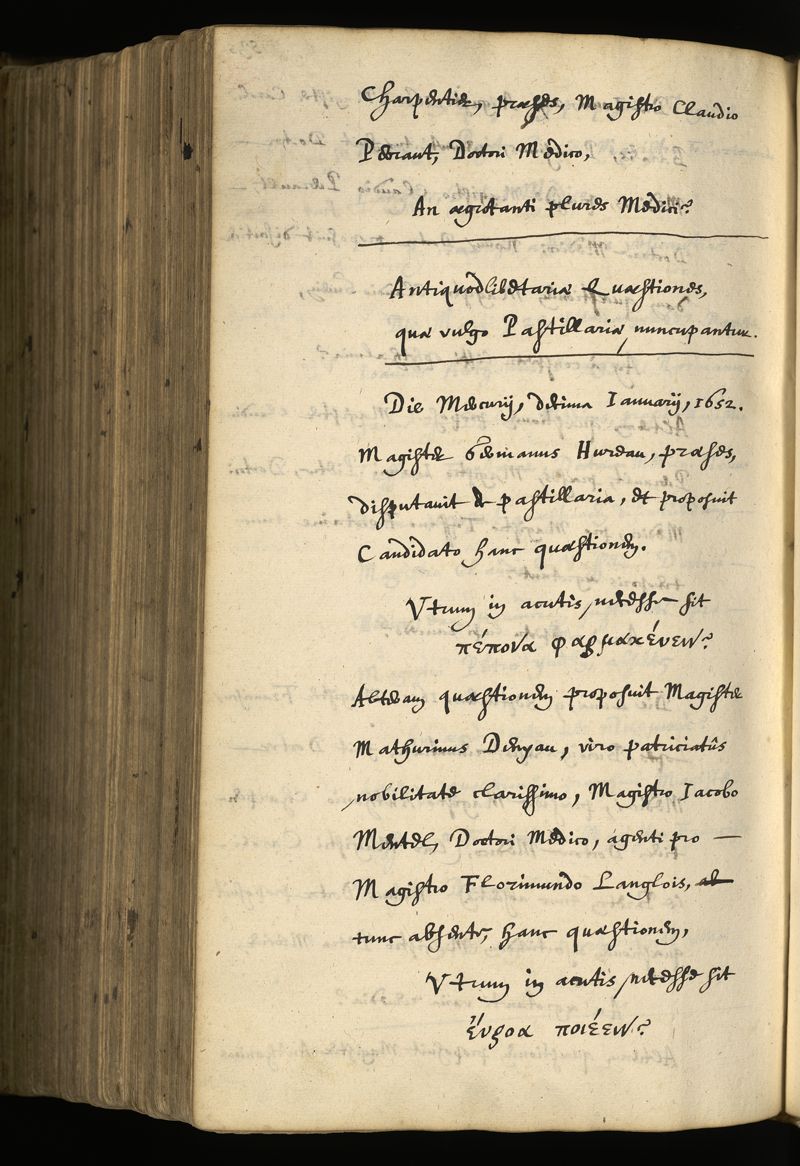 Charpentier, præses, Magistro Claudio
Perraut, Doctori Medico,
An ægrotanti plures Medici?
Antiquodlibetariæ Quæstiones,
quæ vulgo Pastillariæ nuncupantur.
Die Mercurij, decima Ianuarij, 1652.
Magister Germanus Hureau, præses,
disputavit de pastillaria, et proposuit
Candidato hanc quæstionem.
Utrum in acutis necesse sit
πέπονα φαρμακέυειν?
Alteram quæstionem proposuit Magister
Mathurinus Denyau, viro patriciatûs
nobilitate clarissimo, Magistro Iacobo
Mentel, Doctori Medico, agenti pro —
Magistro Florimundo Langlois,
tunc absente, hanc quæstionem,
Utrum in acutis necesse sit
έυροα ποιέειν?